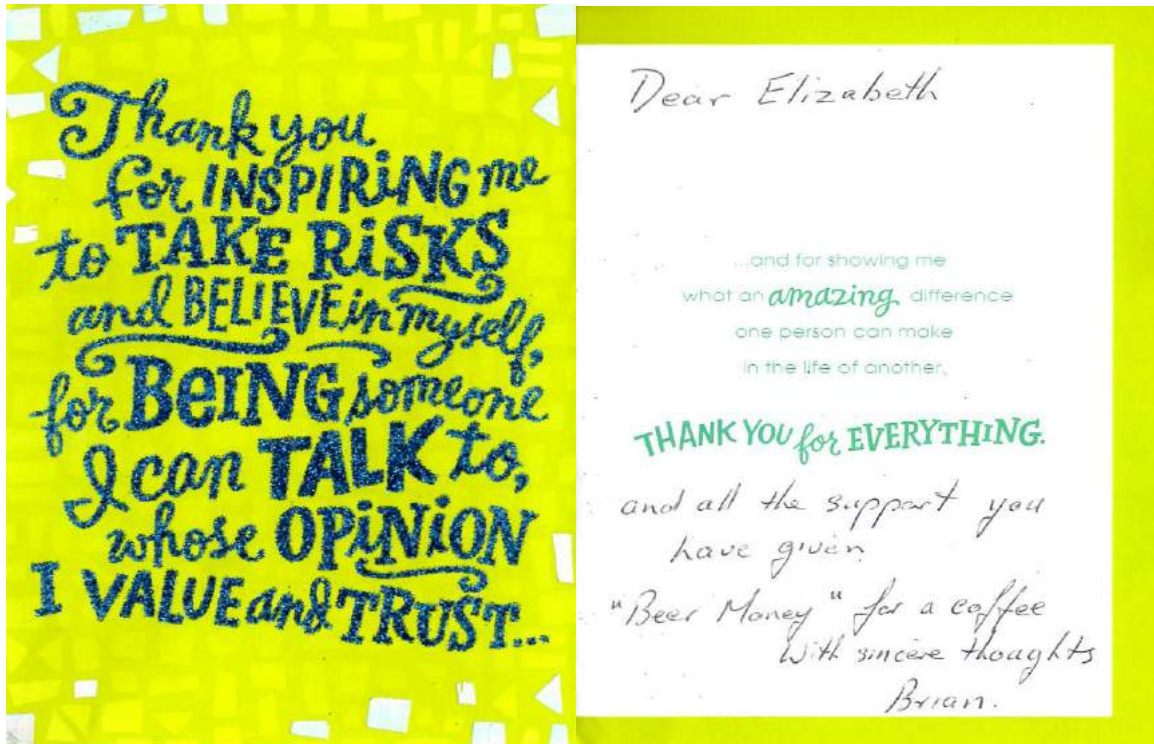 Thank you
for INSPIRING me
to TAKE RISKS
and BELIEVE in myself,
for BEING someone
I can TALK to,
whose OPINION
I VALUE and TRUST...
Dear Elizabeth
...and for showing me
what an amazing difference
one person can make
in the life of another,
THANK YOU for EVERYTHING.
and all the support you
have given
"Beer Money" for a coffee
With sincere thoughts
Brian.